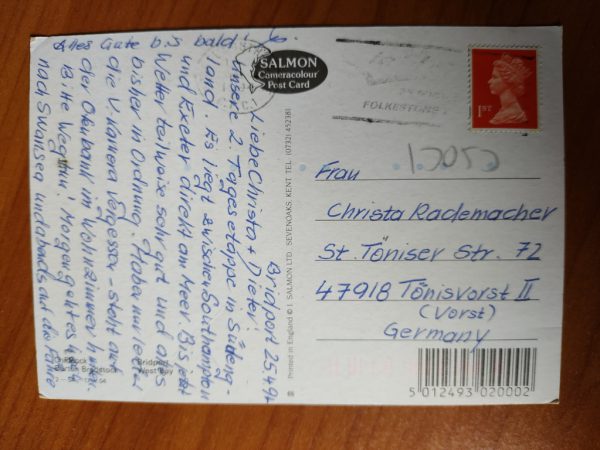 Bridport 25.4.97
Liebe Christa + Dieter!
Unsere 2. Tagesetappe in Südeng-
land. Es liegt zwischen Southampton
und Exeter direkt am Meer. Bis jetzt
Wetter teilweise sehr gut und alles
bisher in Ordnung. Haben nur leider
die V. Kamera vergessen - steht auf
der Ofenbank im Wohnzimmer
Bitte Morgen geht es
nach Swansea und abends auf die Fähre
Alles Gute bis bald!
SALMON
Cameracolour
Post Card
FOLKESTONE
1ST
Frau
Christa Rademacher
St. Töniser Str. 72
47918 Tönisvorst II
(Vorst)
Germany
Printed in England © J. SALMON LTD., SEVENOAKS, KENT. TEL. (0732) 452381
Burton Bradstock
Bridport
West Bay
5 012493 020002